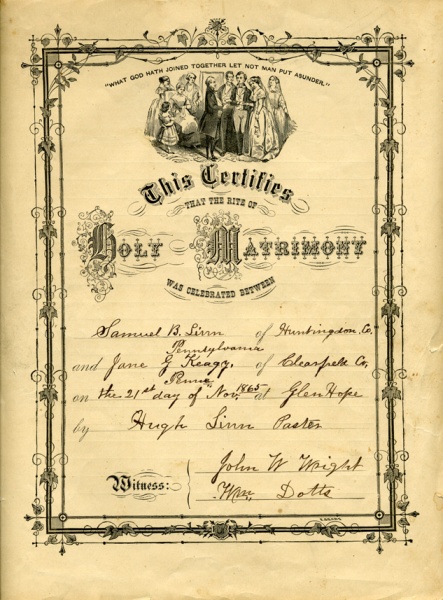 "WHAT GOD HATH JOINED TOGETHER LET NOT MAN PUT ASUNDER."
This Certifies
THAT THE RITE OF
HOLY MATRIMONY
WAS CELEBRATED BETWEEN
Samuel B. Linn of Huntingdon, Co,
Pennsylvania
and Jane G Keagy, of Clearfield Co,
Penna
on the 21st day of Nov. 1865 at Glen Hope
by Hugh Linn Paster
Witness: John W Wright
Wm, Dotts